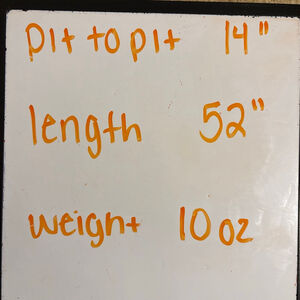 pit to pit 14"
length 52"
weight 10 oz